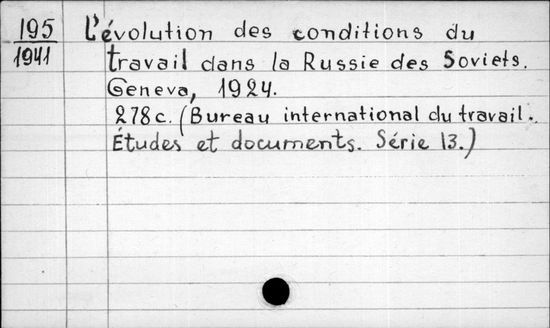 195 L'évolution des conditions du
1941 travail dans la Russie des Soviets.
Geneva, 1924.
278c. (Bureau international du travail.
Études et documents. Série 13.)